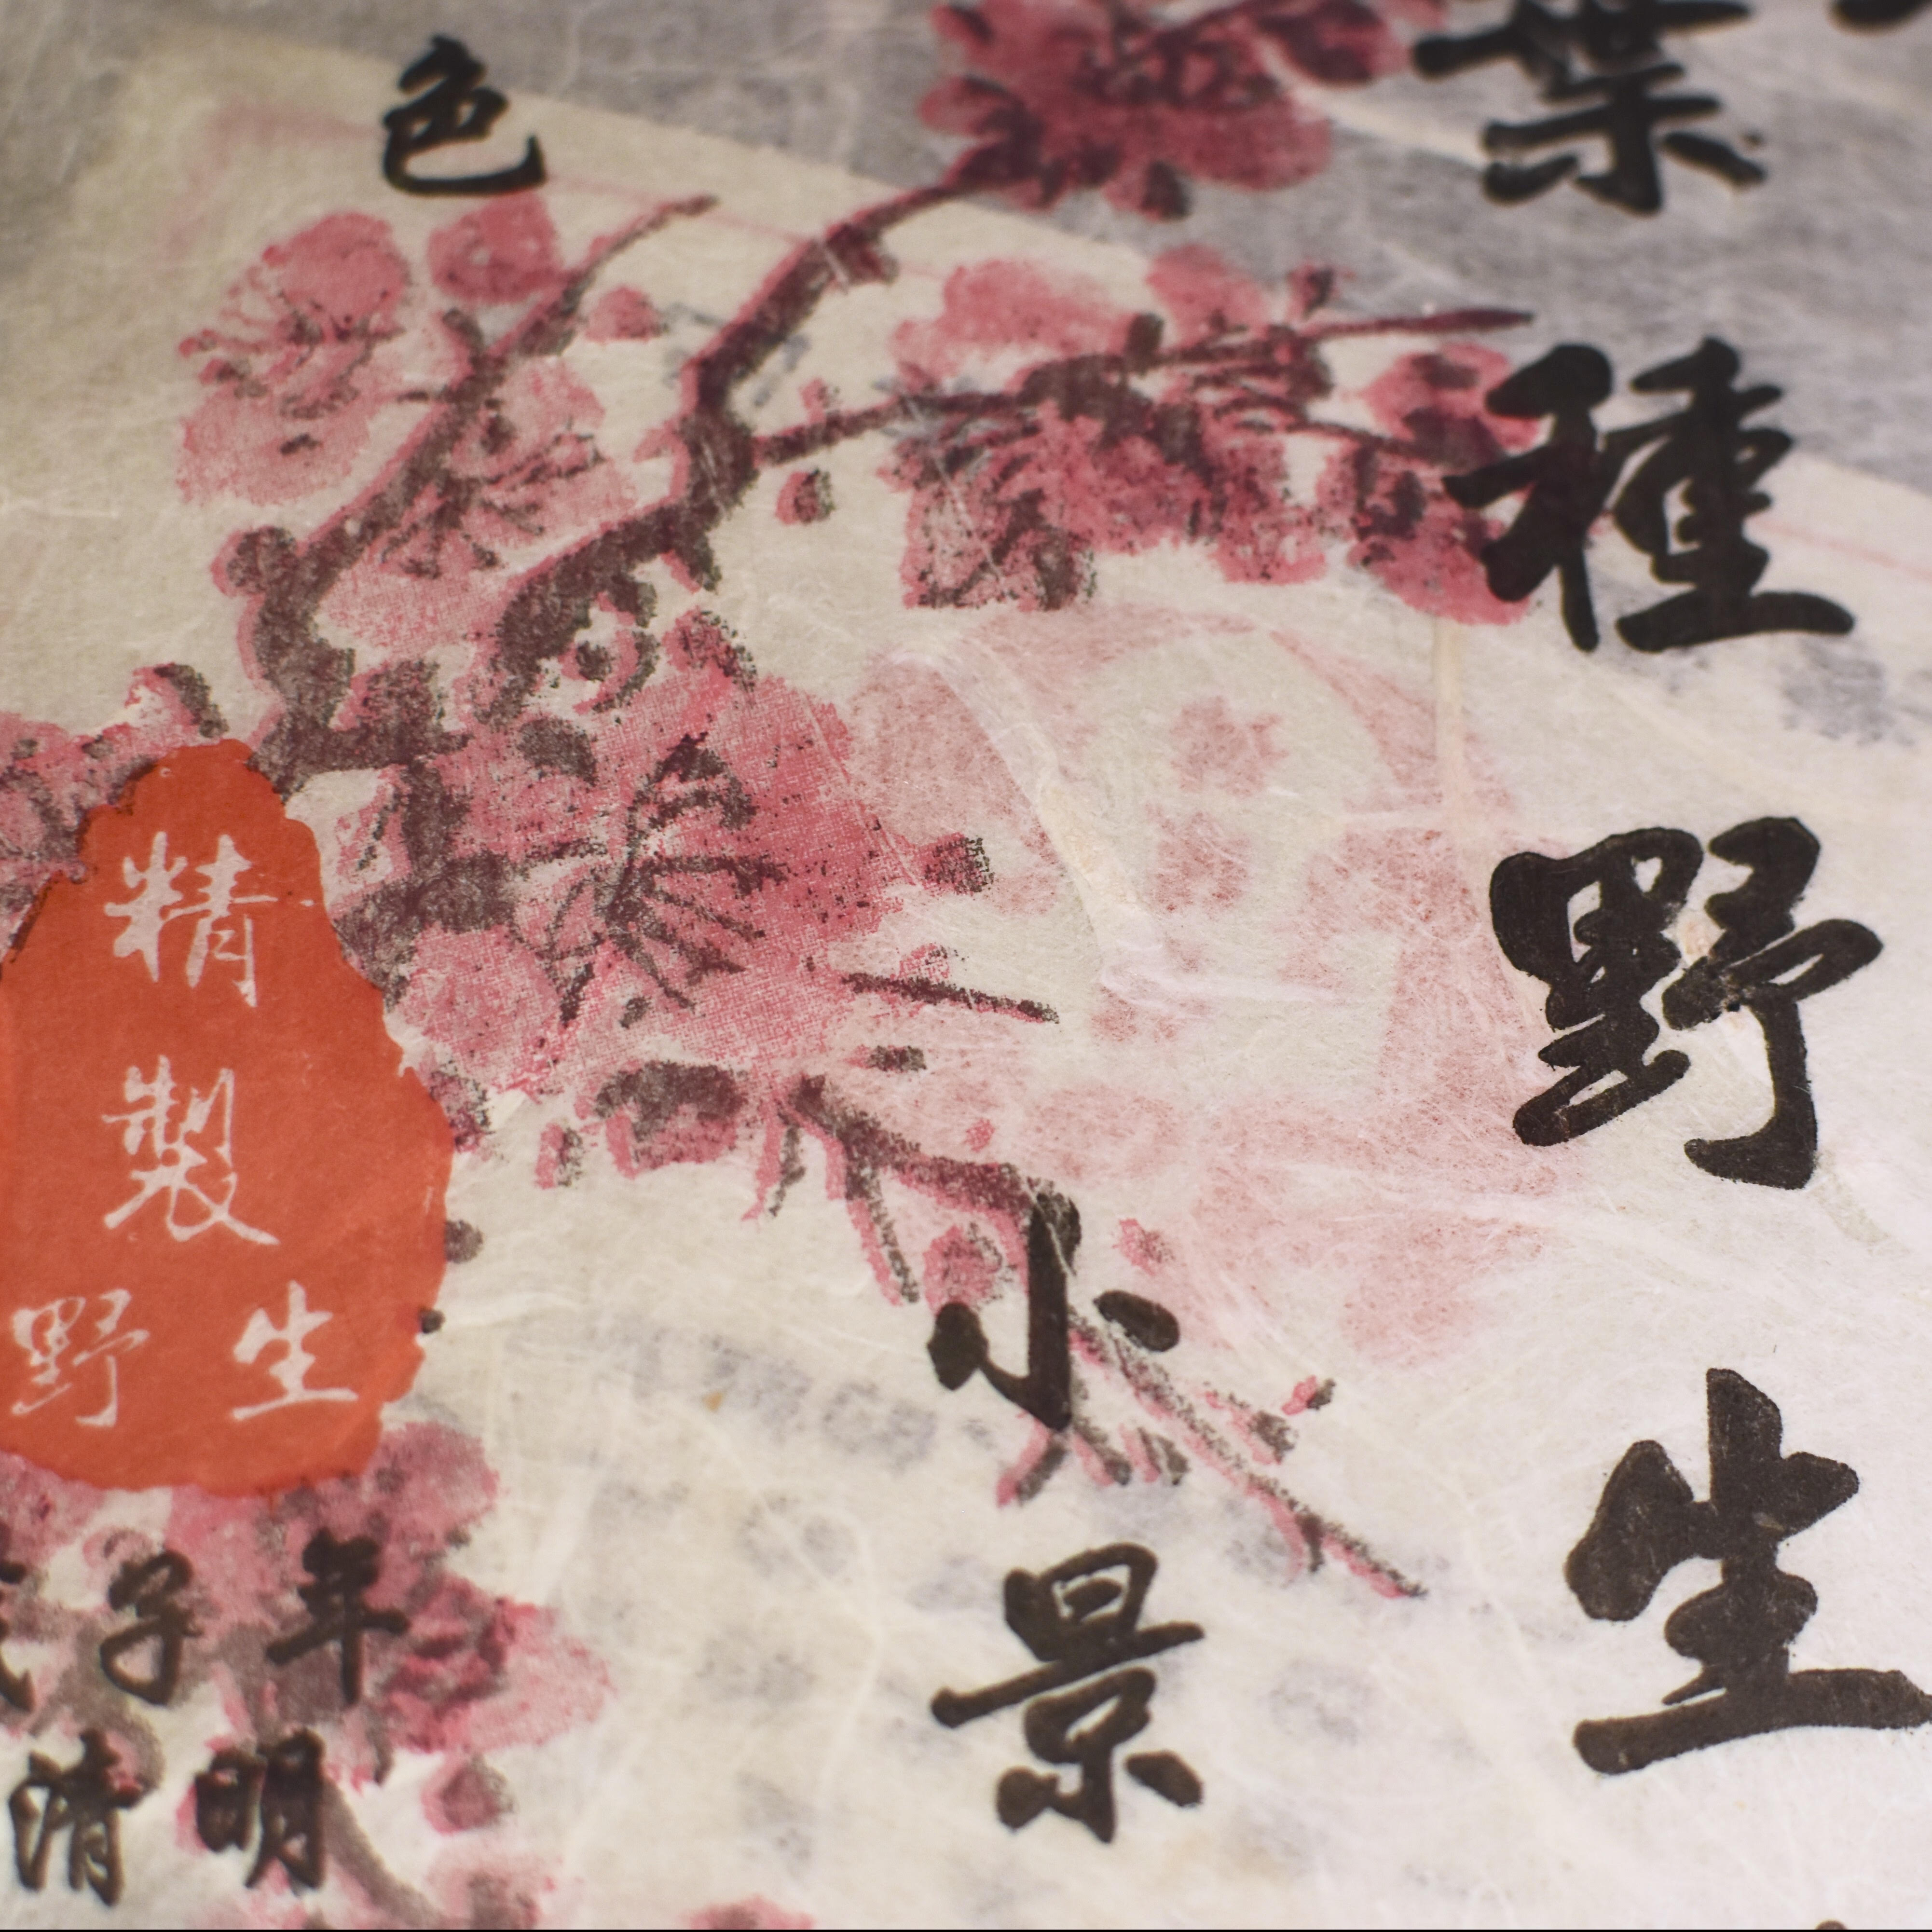 葉種野生
小景
色
精製
野生
子年
清明